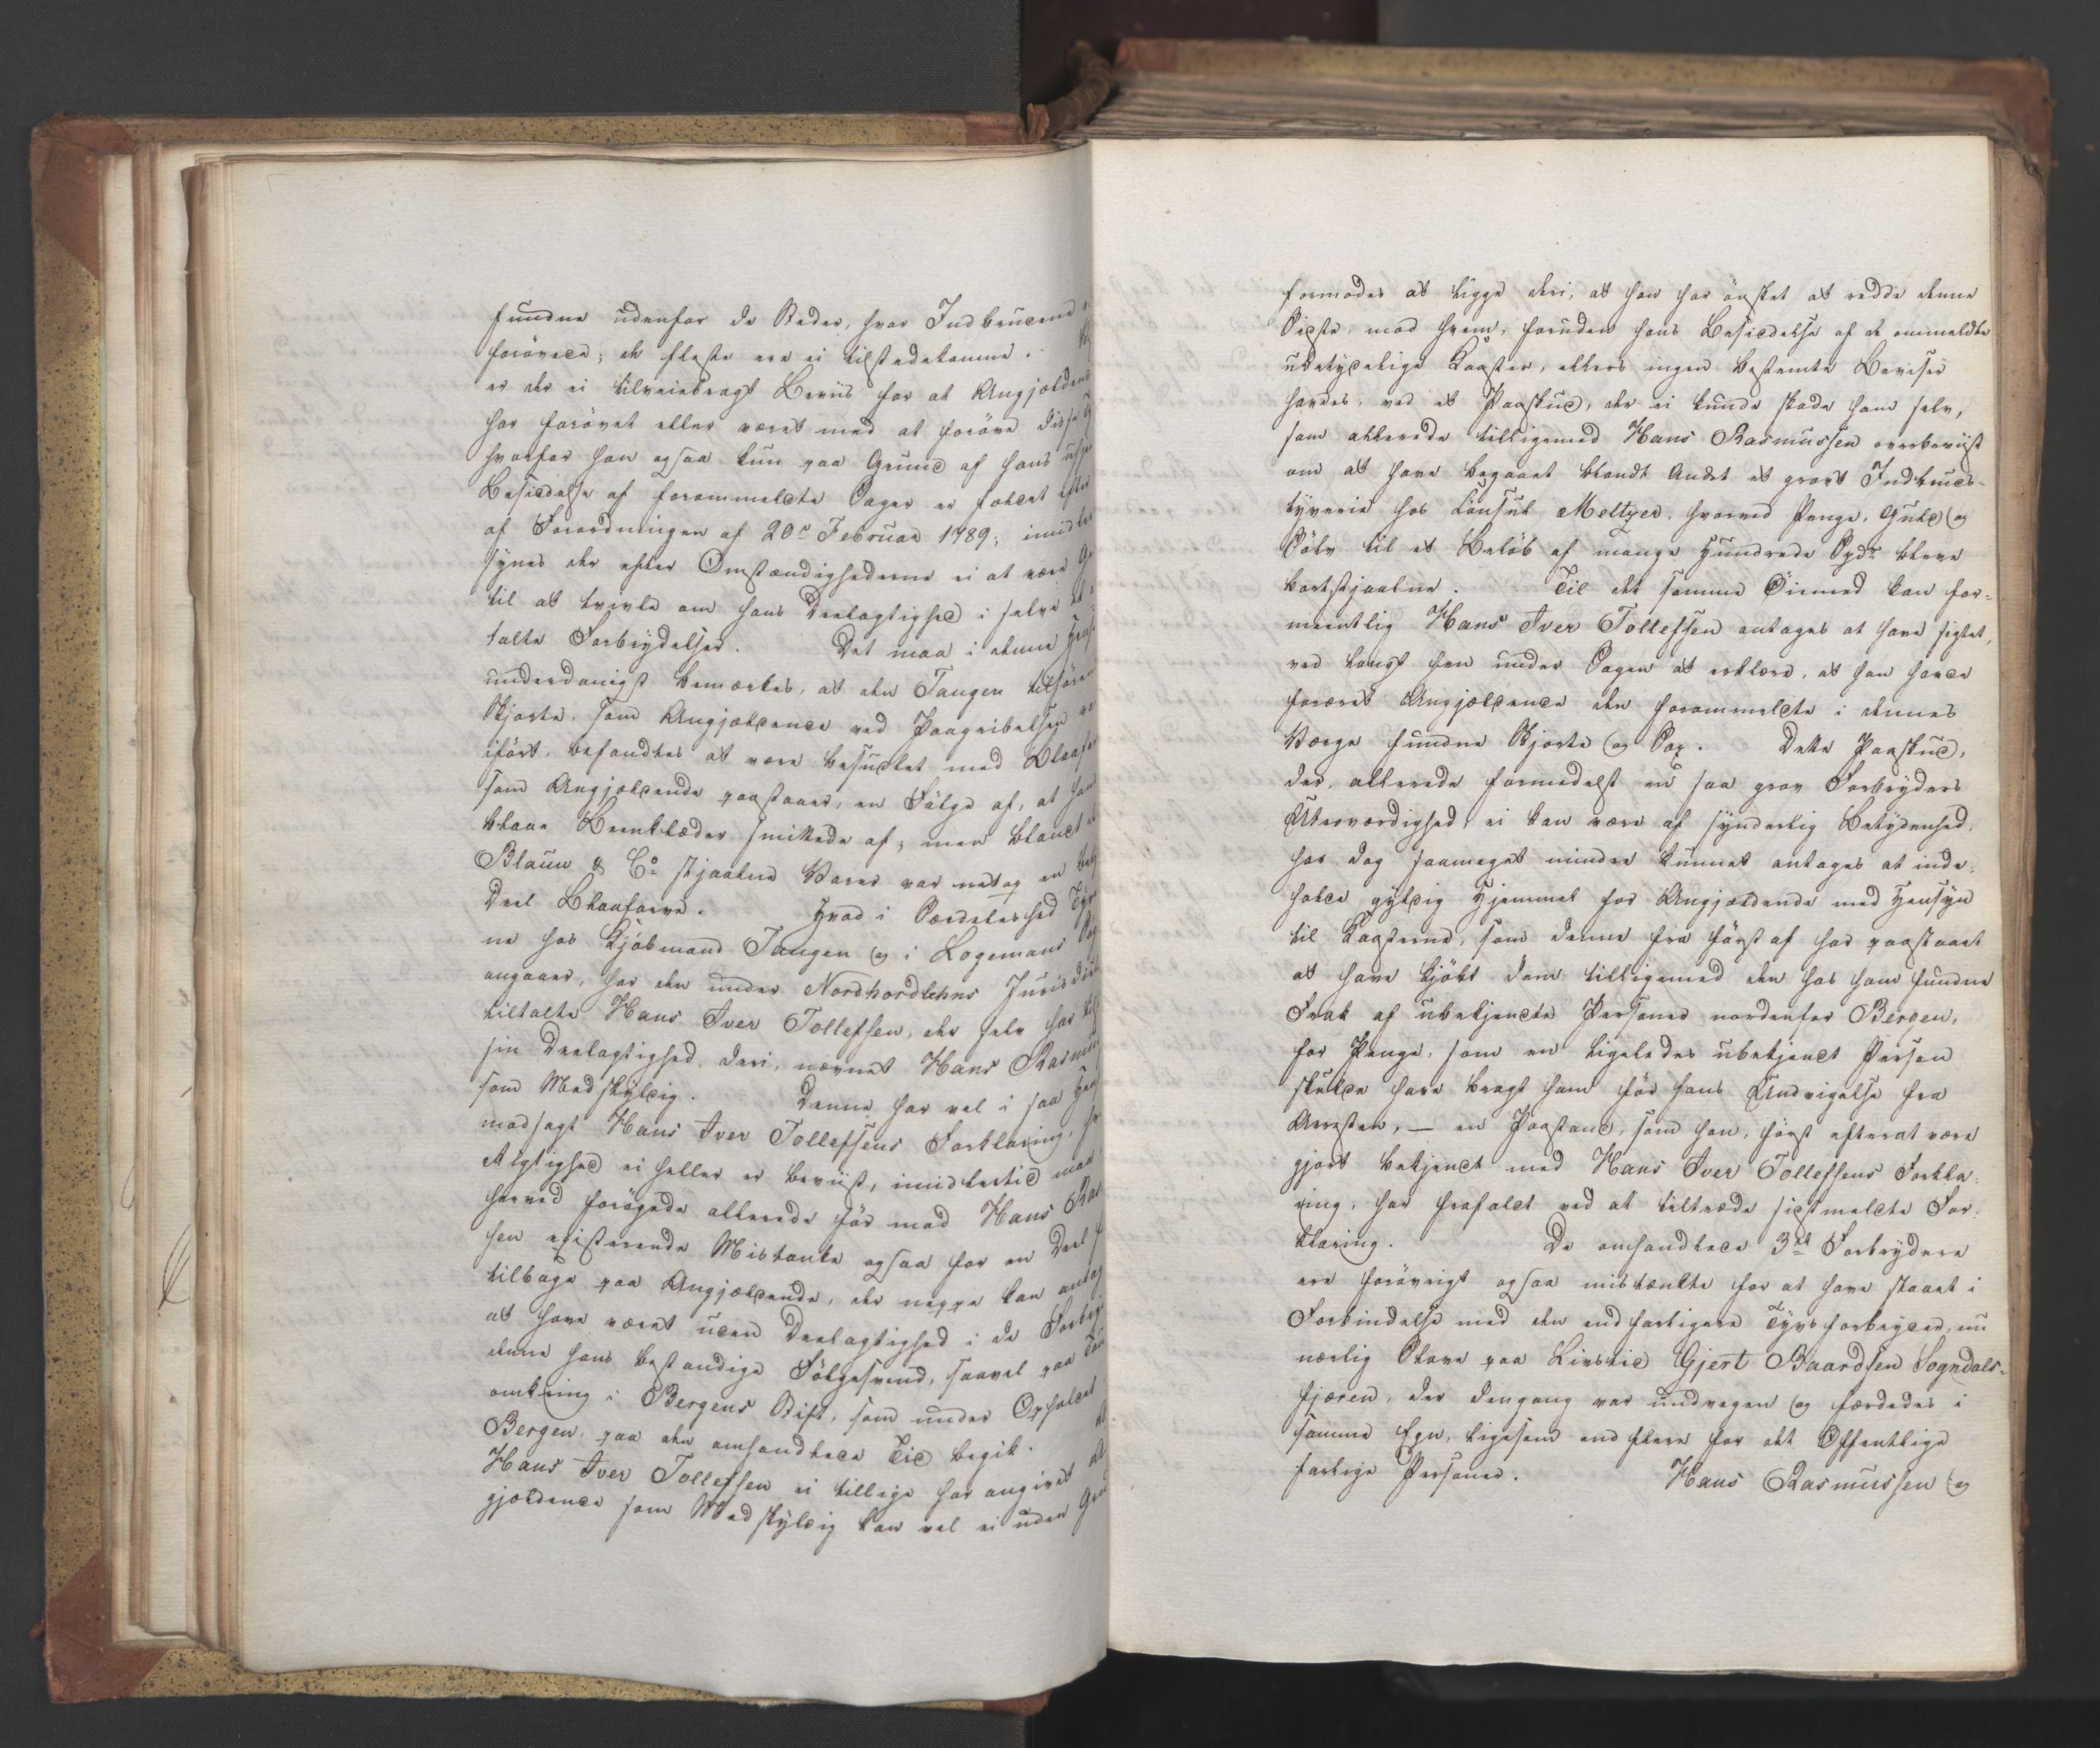 fundne udenfor de Steder, hvor Indbrudene
forövede; de fleste ere ei tilstedekomne.
er der ei tilveiebragt Beviis for at Angjældende
har forövet eller været med at foröve disse
hvorfor han ogsaa kun paa Grund af hans
Besiddelse af forommeldte Sager er fældet efter
af Forordningen af 20de Februar 1789; imidler
synes der efter Omstændighederne ei at være
til at tvivle om hans Deelagtighed i selve
talte Forbrydelser. Det maa i denne
underdanigst bemærkes, at den Tangen tilhören
Skjorte, som Angjældende ved Paagribelsen
iført, befandtes at være besudlet med Blaafar
som Angjældende paastaaer, en Fölge af, at hans
blaae Beenklæder smittede af; men blandt
Blauw & Co stjaalne Varer var netop en
Deel Blaafarve. Hvad i Særdeleshed
ne hos Kjöbmand Tangen og i Logemans
angaaer, har den under Nordhordlehns Jurisdict
tiltalte Hans Iver Tollefsen, der selv har
sin Deelagtighed deri, nævnet Hans Rasmus
som Medskyldig. Denne har vel i saa
modsagt Hans Iver Tollefsens Forklaring,
Rigtighed ei heller er beviist, imidlertid maa
herved forögede allerede för mod Hans Ras
sen existerende Mistanke ogsaa for en Deel
tilbage paa Angjældende, der neppe kan antag
at have været uden Deelagtighed i de
denne hans bestandige Fölgesvend, saavel paa
omkring i Bergens Stift, som under Ophold
Bergen, paa den omhandlede Tid begik.
Hans Iver Tollefsen ei tillige har angivet
gjældende som Medskyldig kan vel ei uden
formodes at ligge deri, at han har önsket at redde denne
Sidste, mod hvem, foruden hans Besiddelse af de ommeldte
ubetydelige Kaaster, ellers ingen bestemte Beviser
havdes, ved et Paaskud, der ei kunde skade ham selv,
som allerede tilligemed Hans Rasmussen overbeviist
om at have begaaet blandt Andet et grovt Indbruds-
tyverie hos Consul Meltzer, hvorved Penge, Guld og
Sölv til et Belöb af mange Hundrede Spdr bleve
bortstjaalne. Til det samme Öiemed kan for-
meentlig Hans Iver Tollefsen antages at have sigtet,
ved langt hen under Sagen at erklære, at han havde
foræret Angjældende den forommeldte i dennes
Værge fundne Skjorte og Sax. Dette Paaskud,
der, allerede formedelst en saa grov Forbryders
Utroværdighed, ei kan være af synderlig Betydenhed,
har dog saameget mindre kunnet antages at inde-
holde gyldig Hjemmel for Angjældende med Hensyn
til Kaasterne, som denne fra först af har paastaaet
at have kjöbt dem tilligemed den hos ham fundne
Frak af ubekjendte Personer nordenfor Bergen,
for Penge, som en ligeledes ubekjendt Person
skulde have bragt ham för hans Undvigelse fra
Arresten, — en Paastand, som han, först efterat være
gjort bekjendt med Hans Iver Tollefsens Forkla-
ring, har frafaldt ved at tiltræde sidstmeldte For-
klaring. De omhandlede 3de Forbrydere
ere foröwrigt ogsaa mistænkte for at have staaet i
Forbindelse med den endfarligere Tyvsforbryder, nu
nærlig Slave paa Livstid Gjert Baardsen Sogndals-
fjæren, der dengang var undvegen og færdedes i
samme Egn, ligesom end flere for det Offentlige
farlige Personer. Hans Rasmussen og